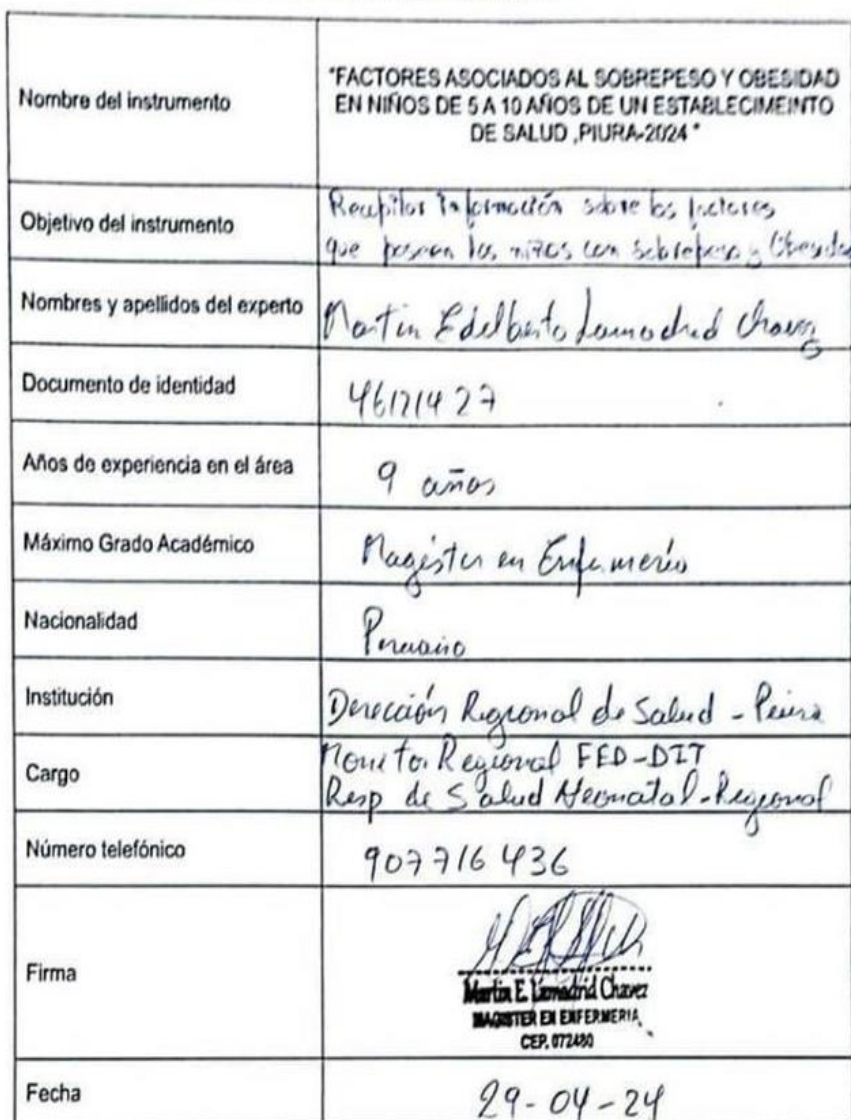 Nombre del instrumento
"FACTORES ASOCIADOS AL SOBREPESO Y OBESIDAD
EN NIÑOS DE 5 A 10 AÑOS DE UN ESTABLECIMEINTO
DE SALUD ,PIURA-2024 "
Objetivo del instrumento
Recopilar Información sobre los factores
que poseen los niños con sobrepeso y Obesidad
Nombres y apellidos del experto
Martin Edelberto Lamadrid Chavez
Documento de identidad
46121427
Años de experiencia en el área
9 años
Máximo Grado Académico
Magister en Enfermería
Nacionalidad
Peruano
Institución
Dirección Regional de Salud - Piura
Cargo
Monitor Regional FED-DIT
Resp de Salud Neonatal-Regional
Número telefónico
907716436
Firma
Martin E. Lamadrid Chavez
MAGISTER EN ENFERMERIA
CEP. 072480
Fecha
29-04-24